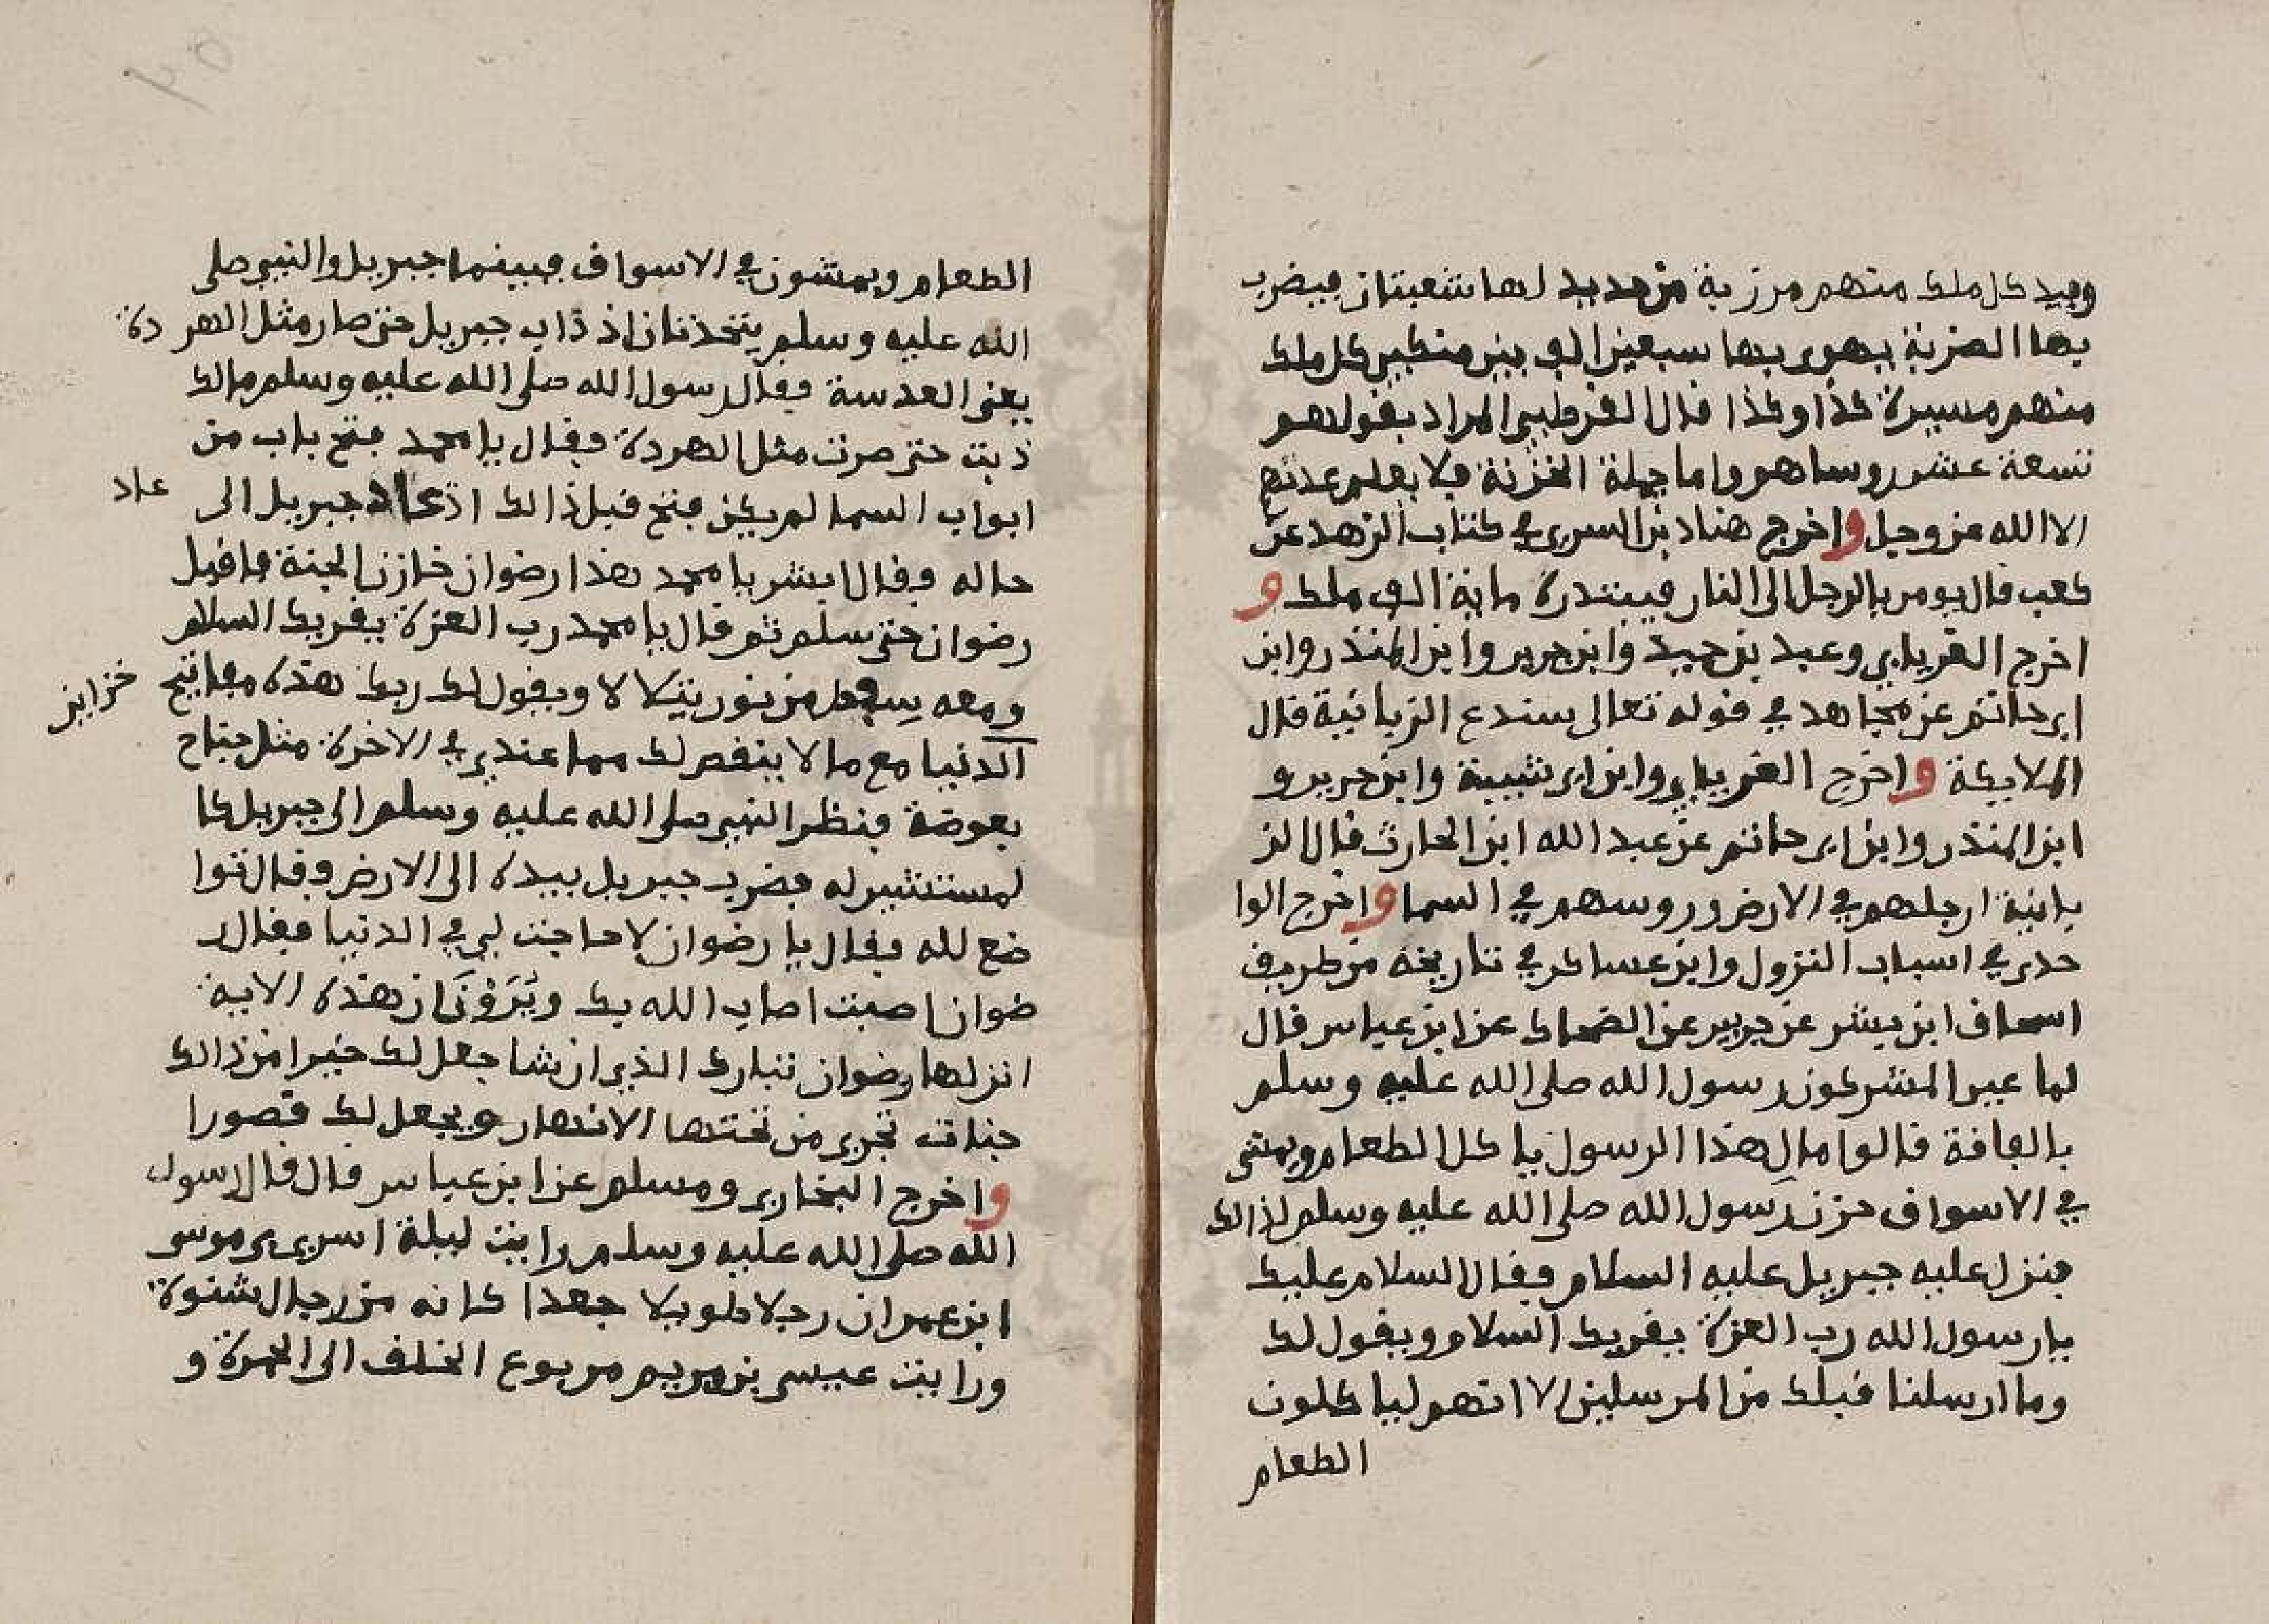 وبيد كل ملك منهم مرزبة من حديد لها شعبتان فيضرب
بها الضربة يهوى بها سبعين الف بين منكبي كل ملك
منهم مسيرة كذا وكذا قال القرطبي المراد بقوله هو
تسعة عشر روساهم واما جملة الخزنة فلا يعلم عدتهم
الا الله عز وجل واخرج هناد بن السرى في كتاب الزهد عن
كعب قال يومر بالرجل الى النار فيبتدره ماية الف ملك و
اخرج الفريابي وعبد بن حميد وابن جرير وابن المنذر وابن
ابي حاتم عن مجاهد في قوله تعالى سندع الزبانية قال
الملايكة واخرج الفريابي وابن ابي شيبة وابن جرير و
ابن المنذر وابن ابي حاتم عن عبد الله ابن الحارث قال الز
بانية ارجلهم في الارض وروسهم في السما واخرج الوا
حدي في اسباب النزول وابن عساكر في تاريخه من طريق
اسحاق ابن بشر عن جريبر عن الضحاك عن ابن عباس قال
لما عير المشركون رسول الله صلى الله عليه وسلم
بالفاقة قالوا مال هذا الرسول ياكل الطعام ويمشى
في الاسواق حزن رسول الله صلى الله عليه وسلم لذالك
فنزل عليه جبريل عليه السلام فقال السلام عليك
يا رسول الله رب العزة يقريك السلام ويقول لك
وما ارسلنا قبلك من المرسلين الا انهم لياكلون
الطعام
الطعام ويمشون في الاسواق فبينما جبريل والنبي صلى
الله عليه وسلم يتحذثان اذ ذاب جبريل حتى صار مثل الهر دة
يعنى العدسة فقال رسول الله صلى الله عليه وسلم مالك
ذبت حتى صرت مثل الهردة فقال يا محمد فتح باب من
ابواب السما لم يكن فتح قبل ذالك اذ عاد جبريل الى
عاد
حاله فقال ابشر يا محمد هذا رضوان خازن الجنة فاقبل
رضوان حتى سلم ثم قال يا محمد رب العزة يقريك السلام
ومعه سفط من نور يتلالا ويقول لك ربك هذه مفاتيح
خزاين
الدنيا مع ما لا ينقص لك مما عندي في الاخرة مثل جناح
بعوضة فنظر النبي صلى الله عليه وسلم الى جبريل كا
لمستشير له فضرب جبريل بيده الى الارض وقال توا
ضع لله فقال يا رضوان لا حاجت لي في الدنيا فقال ر
ضوان اصبت اصاب الله بك ويَرَوْنَ ان هذه الاية
انزلها رضوان تبارك الذي ان شا جعل لك خيرا من ذالك
جنات تجري من تحتها الانهار ويجعل لك قصورا
واخرج البخاري ومسلم عن ابن عباس قال قال رسول
الله صلى الله عليه وسلم رايت ليلة اسري بي موسى
ابن عمران رجلا طويلا جعدا كانه من رجال شنوة
ورايت عيسى بن مريم مربوع الخلق الى الحمرة و